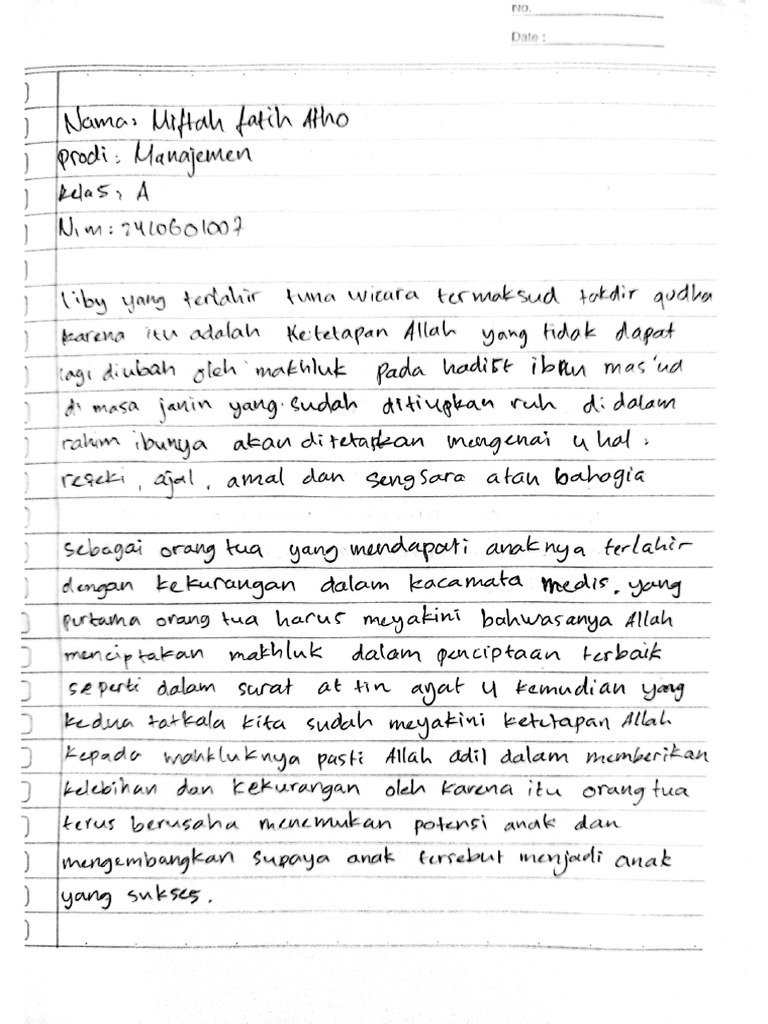 No.
Date :
Nama: Miftah fatih Atho
prodi: Manajemen
kelas: A
Nim: 2410601007
liby yang terlahir tuna wicara termaksud takdir qodha
karena itu adalah Ketetapan Allah yang tidak dapat
lagi diubah oleh makhluk pada hadist ibnu mas'ud
di masa janin yang sudah ditiupkan ruh di dalam
rahim ibunya akan ditetapkan mengenai 4 hal :
rezeki, ajal, amal dan sengsara atau bahagia
sebagai orang tua yang mendapati anaknya terlahir
dengan kekurangan dalam kacamata medis, yang
purtama orang tua harus meyakini bahwasanya Allah
menciptakan makhluk dalam penciptaan terbaik
seperti dalam surat at tin ayat 4 kemudian yang
kedua tatkala kita sudah meyakini ketetapan Allah
kepada mahkluknya pasti Allah adil dalam memberikan
kelebihan dan kekurangan oleh karena itu orang tua
terus berusaha menemukan potensi anak dan
mengembangkan supaya anak tersebut menjadi anak
yang sukses.